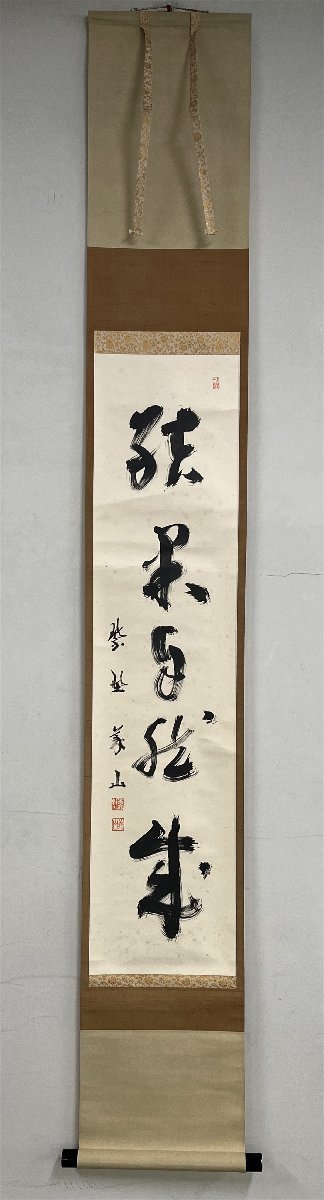 結果自然成
紫野 義山